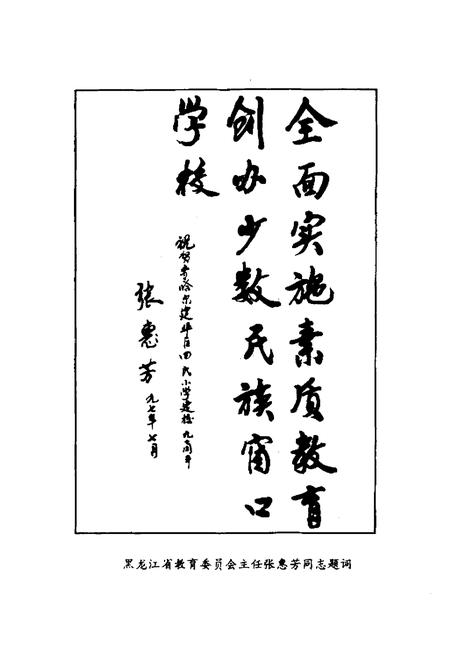 全面实施素质教育
创办少数民族窗口
学校
祝贺齐哈尔建华区回民小学建校九周年
张惠芳 九七年七月
黑龙江省教育委员会主任张惠芳同志题词